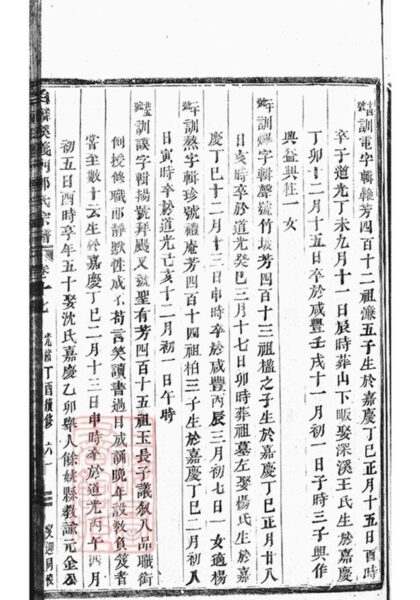 訓電字輯艶芳四百十二祖濂五子生於嘉慶丁巳正月十五日酉時
卒于道光丁未九月十一日辰時葬山下畈娶深溪王氏生於嘉慶
丁卯十二月十五日卒於咸豐壬戌十一月初一日子時三子興作
興益興社一女
訓 字輯聲號竹坡芳四百十三祖楹之子生於嘉慶丁巳正月廿八
日亥時卒於道光癸巳三月十七日卯時葬祖墓左娶楊氏生於嘉
慶丁巳十二月十三日申時卒於咸豐丙辰三月初七日一女適楊
訓熬字輯珍號禮庵芳四百十四祖柏三子生於嘉慶丁巳二月初八
日寅時卒於道光己亥十二月初一日午時
訓談字輯揚號拜颺又號聖有芳四百十五祖玉長子議敘八品職銜
例授修職郎靜默性成不苟言笑讀書過目成誦晚年設教負笈者
嘗至數十云生於嘉慶丁巳二月十三日申時卒於道光丙午四月
初五日酉時享年五十娶沈氏嘉慶乙卯舉人餘姚縣教諭元金公
麟溪義門鄭氏宗譜 卷十七 光緒丁酉續修 六